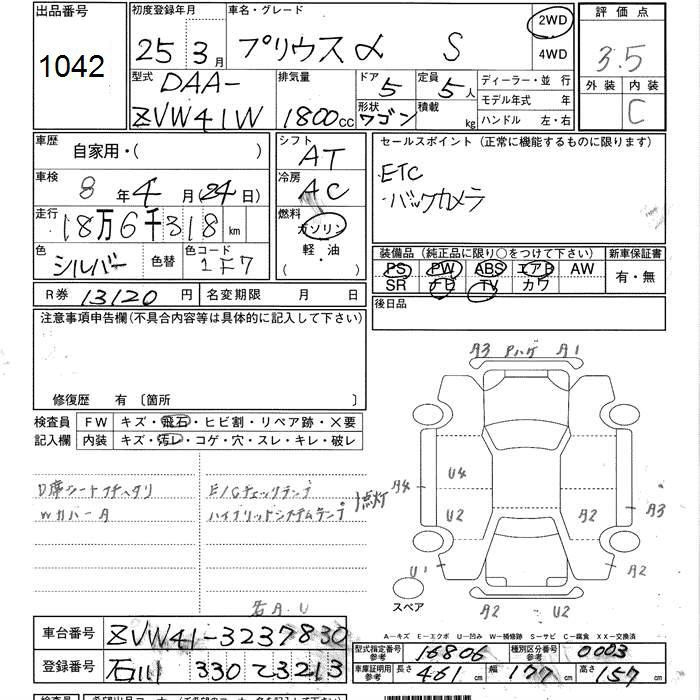 出品番号 1042
初度登録年月 25年 3月
車名・グレード プリウスα S
2WD
4WD
評価点 3.5
外装 内装 C
型式 DAA-
ZVW41W
排気量 1800cc
ドア 5
形状 ワゴン
定員 5人
積載 kg
ディーラー・並行
モデル年式 年
ハンドル 左・右
車歴 自家用・( )
車検 8年4月(24日)
走行 18万6千318km
色 シルバー 色替 色コード 1F7
シフト AT
冷房 AC
燃料 ガソリン
軽・油
・
セールスポイント (正常に機能するものに限ります)
ETC
バックカメラ
装備品 (純正品に限り○をつけて下さい) 新車保証書
PS PW ABS エアB AW 有・無
SR ナビ TV カワ
R券 13120円 名変期限 月 日
後日品
注意事項申告欄(不具合内容等は具体的に記入して下さい)
修復歴 有 〔箇所 〕
検査員 FW キズ・飛石・ヒビ割・リペア跡・×要
記入欄 内装 キズ・汚レ・コゲ・穴・スレ・キレ・破レ
D席シート E/Gチェックランプ
WカバーA ハイブリットシステムランプ 点灯
右A.U
A3 Pハゲ A1
U4
A4 U2 A2 A3
U1 A2
スペア A2 U2
A-キズ E-エクボ U-凹み W-補修跡 S-サビ C-腐食 XX-交換済
車台番号 ZVW41-3237830
登録番号 石川 330 て 3213
型式指定番号 参考 16806 種別区分番号 参考 0003
車庫証明用 参考 長さ 461 cm 幅 177 cm 高さ 157 cm